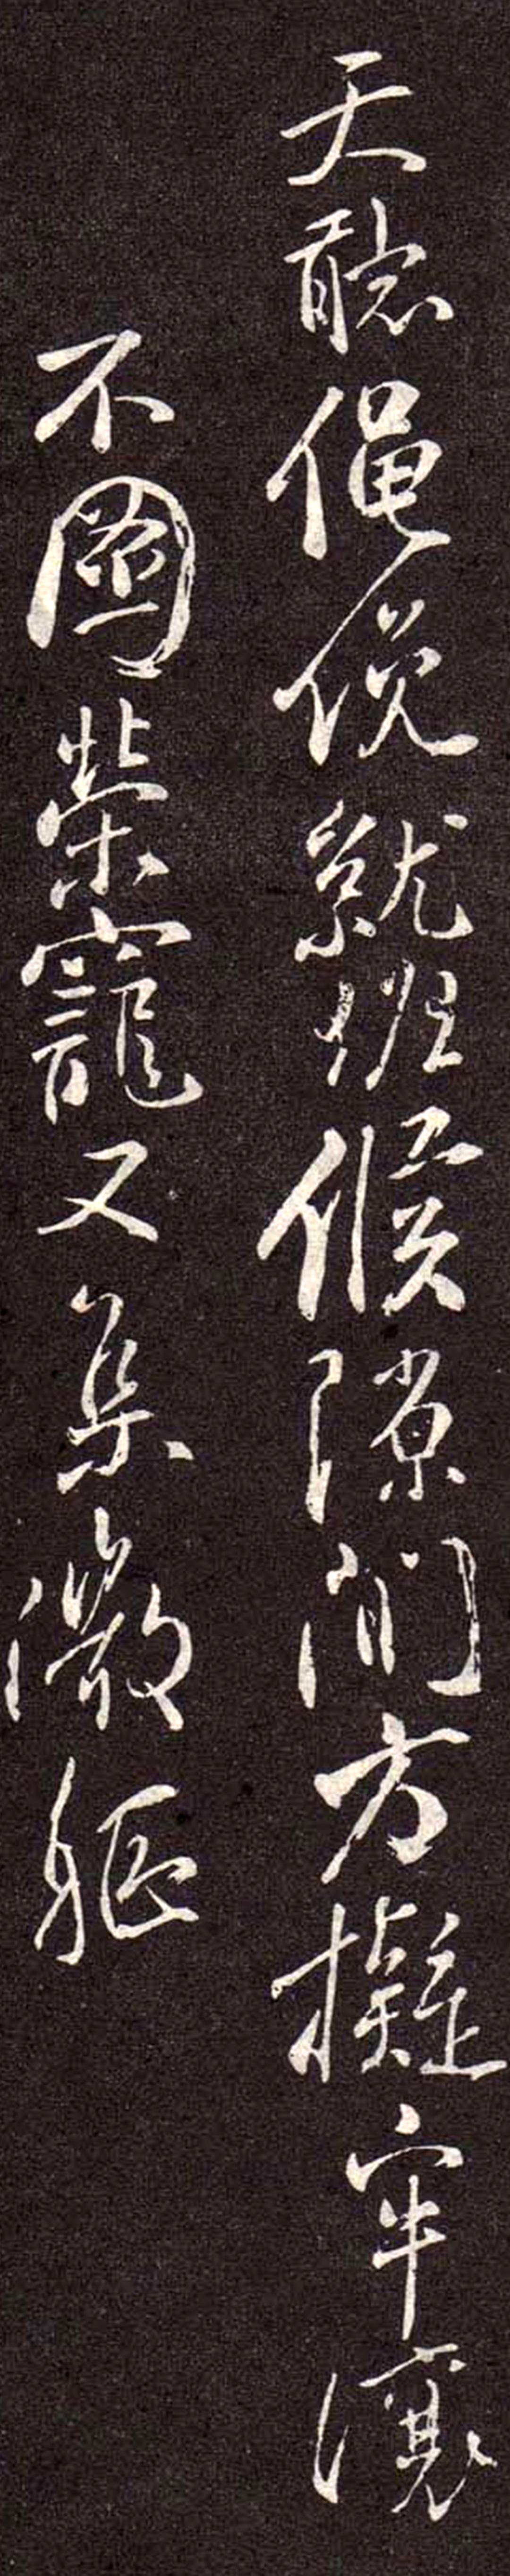 天聴俛俛就班候隙間方擬牢讓
不圖榮寵又集微軀